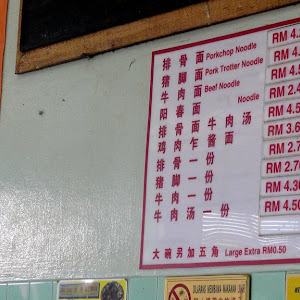 排骨面 Porkchop Noodle RM 4.
猪脚面 Pork Trotter Noodle RM 4.
牛肉面 Beef Noodle RM 4.
阳春面 Noodle RM 2.4
排骨面牛肉汤 RM 4.
鸡肉乍酱面 RM 3.6
排骨一份 RM 2.7
猪脚一份 RM 2.7
牛肉一份 RM 4.3
牛肉汤一份 RM 4.50
大碗另加五角 Large Extra RM0.50
DILARANG MEMBAWA MAKANAN